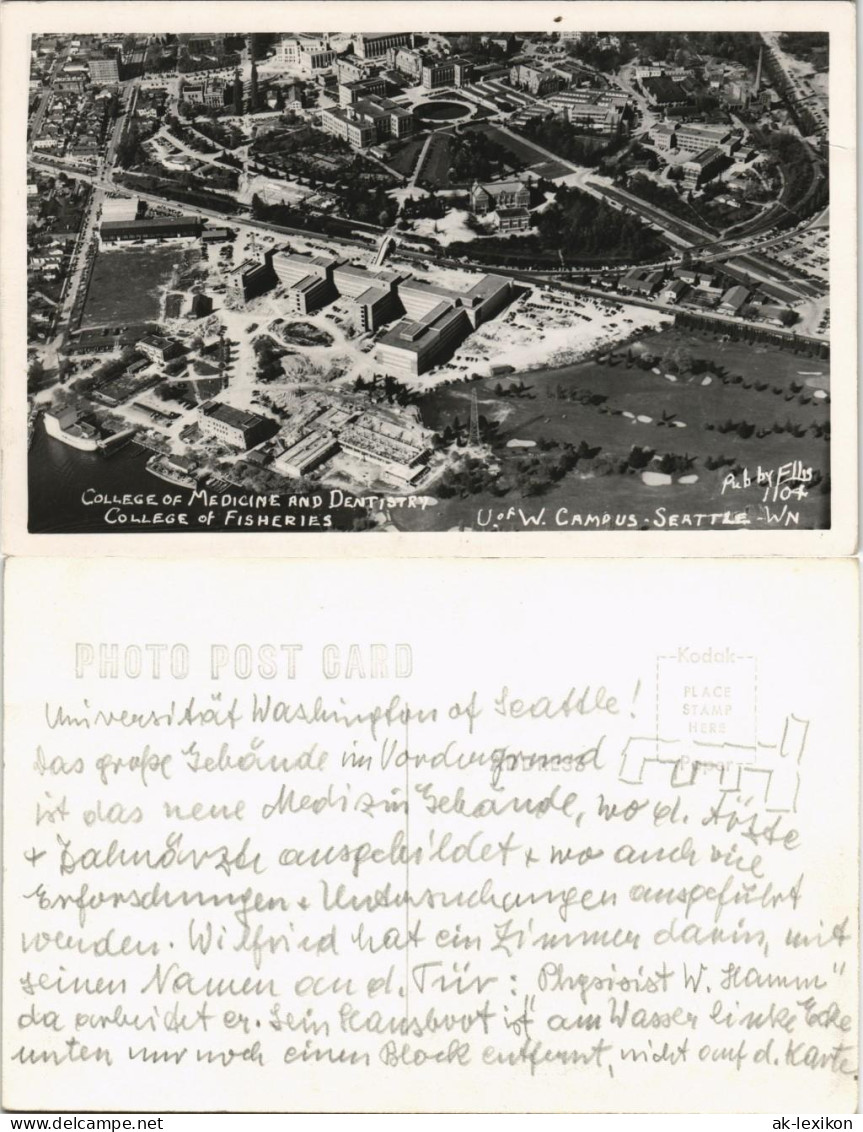 Pub by Ellis
1104
COLLEGE OF MEDICINE AND DENTISTRY
COLLEGE of FISHERIES
U. of W. CAMPUS - SEATTLE - WN
PHOTO POST CARD
Kodak
PLACE
STAMP
HERE
Paper
ADDRESS
Universität Washington of Seattle!
Das große Gebäude im Vordergrund
ist das neue Medizin Gebäude, wo d. Ärzte
+ Zahnärzte ausgebildet + wo auch viele
Erforschungen + Untersuchungen ausgeführt
werden. Wilfried hat ein Zimmer darin, mit
seinen Namen an d. Tür: "Physisist W. Hamm"
da arbeitet er. Sein Hausboot ist am Wasser linke Ecke
unten nur noch einen Block entfernt, nicht auf d. Karte
ak-lexikon